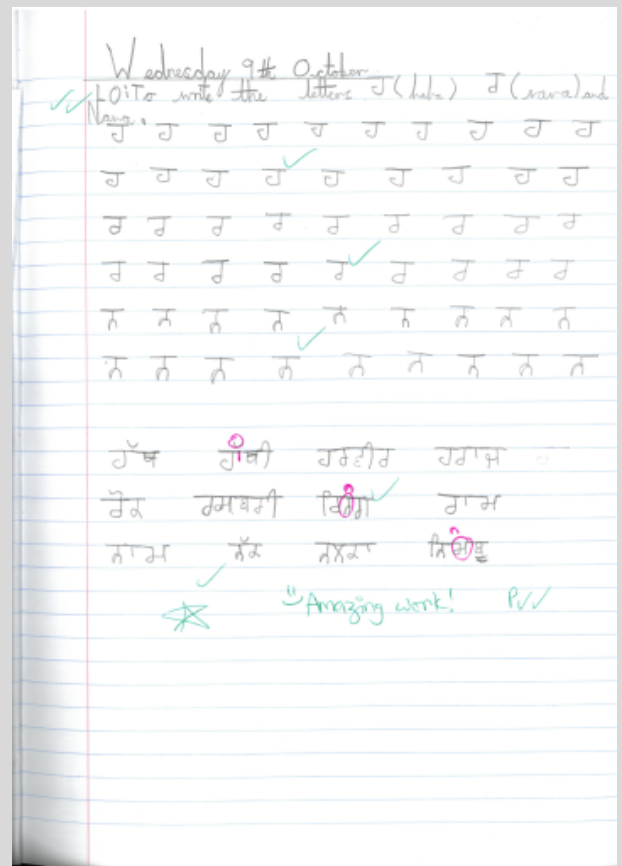 Wednesday 9th October
LO: To write the letters ਹ (haha) ਰ (rara) and
Nana.
ਹ ਹ ਹ ਹ ਹ ਹ ਹ ਹ ਹ ਹ
ਹ ਹ ਹ ਹ ਹ ਹ ਹ ਹ ਹ
ਰ ਰ ਰ ਰ ਰ ਰ ਰ ਰ ਰ
ਰ ਰ ਰ ਰ ਰ ਰ ਰ ਰ ਰ
ਨ ਨ ਨ ਨ ਨ ਨ ਨ ਨ ਨ
ਨ ਨ ਨ ਨ ਨ ਨ ਨ ਨ ਨ
ਹੱਥ ਹਾਥੀ ਹਰਵੀਰ ਹਰਾਜ
ਰੋਕ ਰਾਮ
ਨਾਮ ਨੱਕ ਨਲਕਾ
Amazing work!